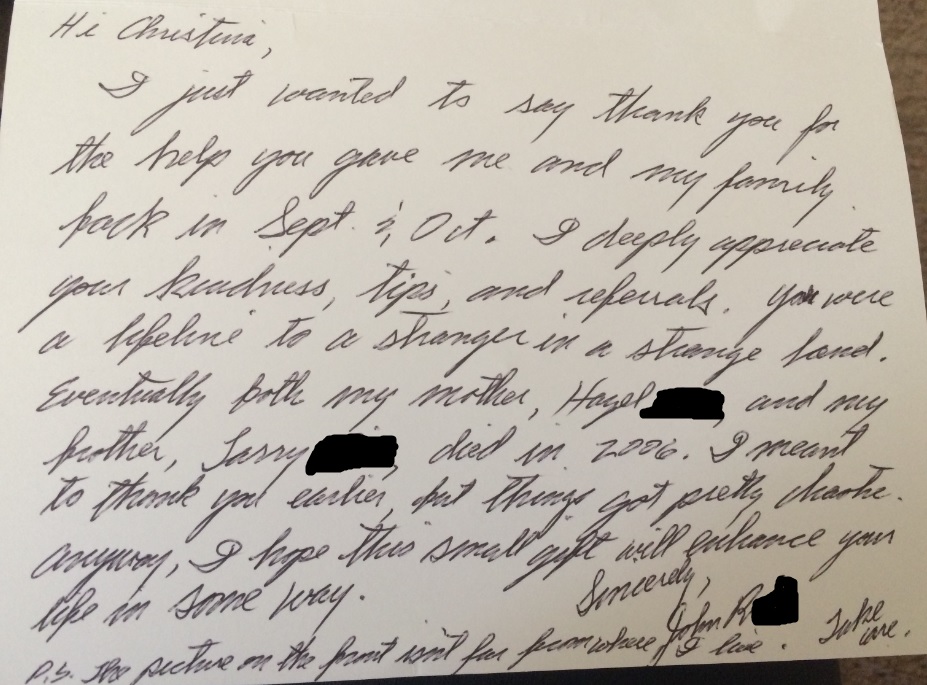 Hi Christina,
I just wanted to say thank you for
the help you gave me and my family
back in Sept. & Oct. I deeply appreciate
your kindness, tips, and referrals. You were
a lifeline to a stranger in a strange land.
Eventually both my mother, Hazel and my
brother, Larry, died in 2006. I meant
to thank you earlier, but things got pretty chaotic.
anyway, I hope this small gift will enhance your
life in some way.
Sincerely,
John R
P.S. The picture on the front isn't far from where I live. Take
care.